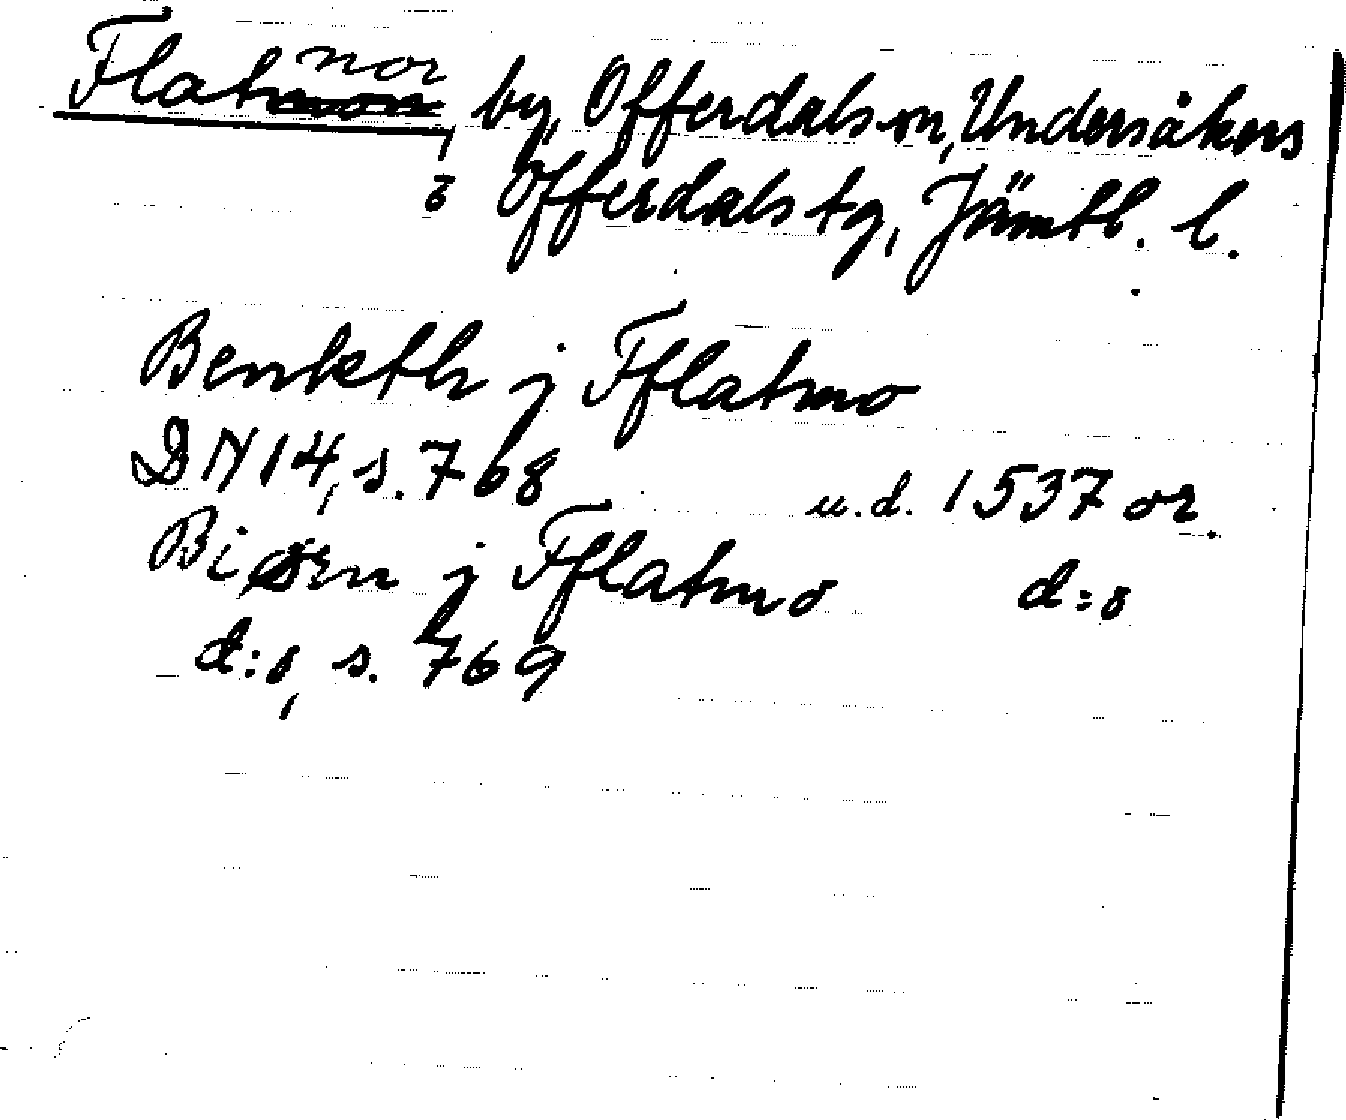 Flatnor, by, Offerdals sn, Undersåkers
o Offerdals tg, Jämtl. l.
Benketh j Fflatmo
DN 14, s. 768 u.d. 1537 or.
Biørn j Fflatmo d:o
d:o, s. 769